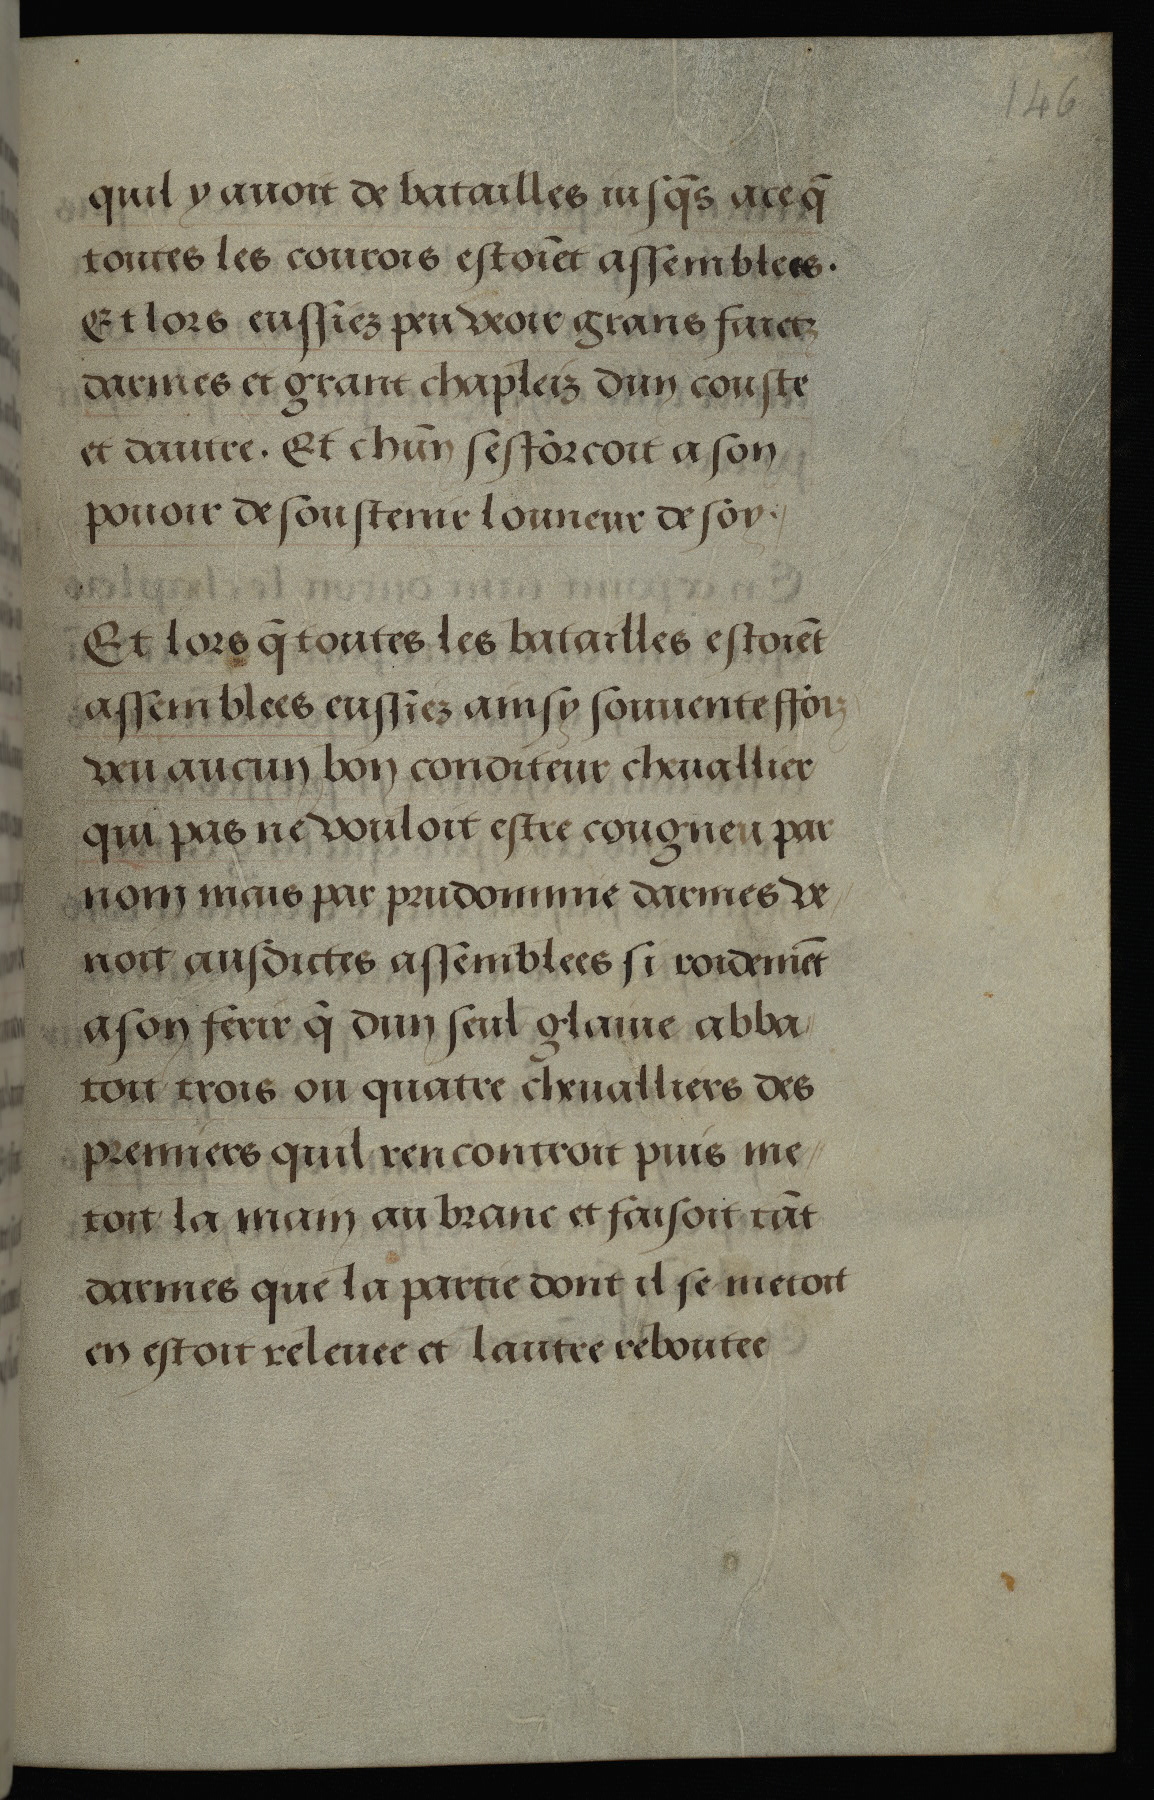 146
quil y auoit de batailles iusq̄s ace q̄
toutes les courois estoiēt assemblees.
Et lors eussiez peu veoir grans faictz
darmes et grant chapleiz dun couste
et dautre. Et chūn sesforcoit a son
pouoir de soustenir lonneur de soy.
Et lors q̄ toutes les batailles estoiēt
assemblees eussiez ainsy souuenteffoiz
veu aucun bon conditeur cheuallier
qui pas ne vouloit estre congneu par
nom mais par prudomme darmes ve//
noit ausdictes assemblees si roidemēt
a son ferir q̄ dun seul glaiue abba//
toit trois ou quatre cheualliers des
premiers quil rencontroit puis me//
toit la main au branc et faisoit tāt
darmes que la partie dont il se metoit
en estoit releuee et lautre reboutee